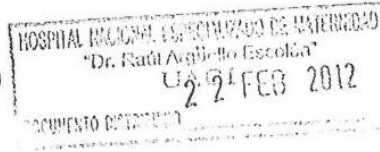 HOSPITAL NACIONAL ESPECIALIZADO DE MATERNIDAD
"Dr. Raúl Argüello Escolán"
UACI
22 FEB 2012
DOCUMENTO